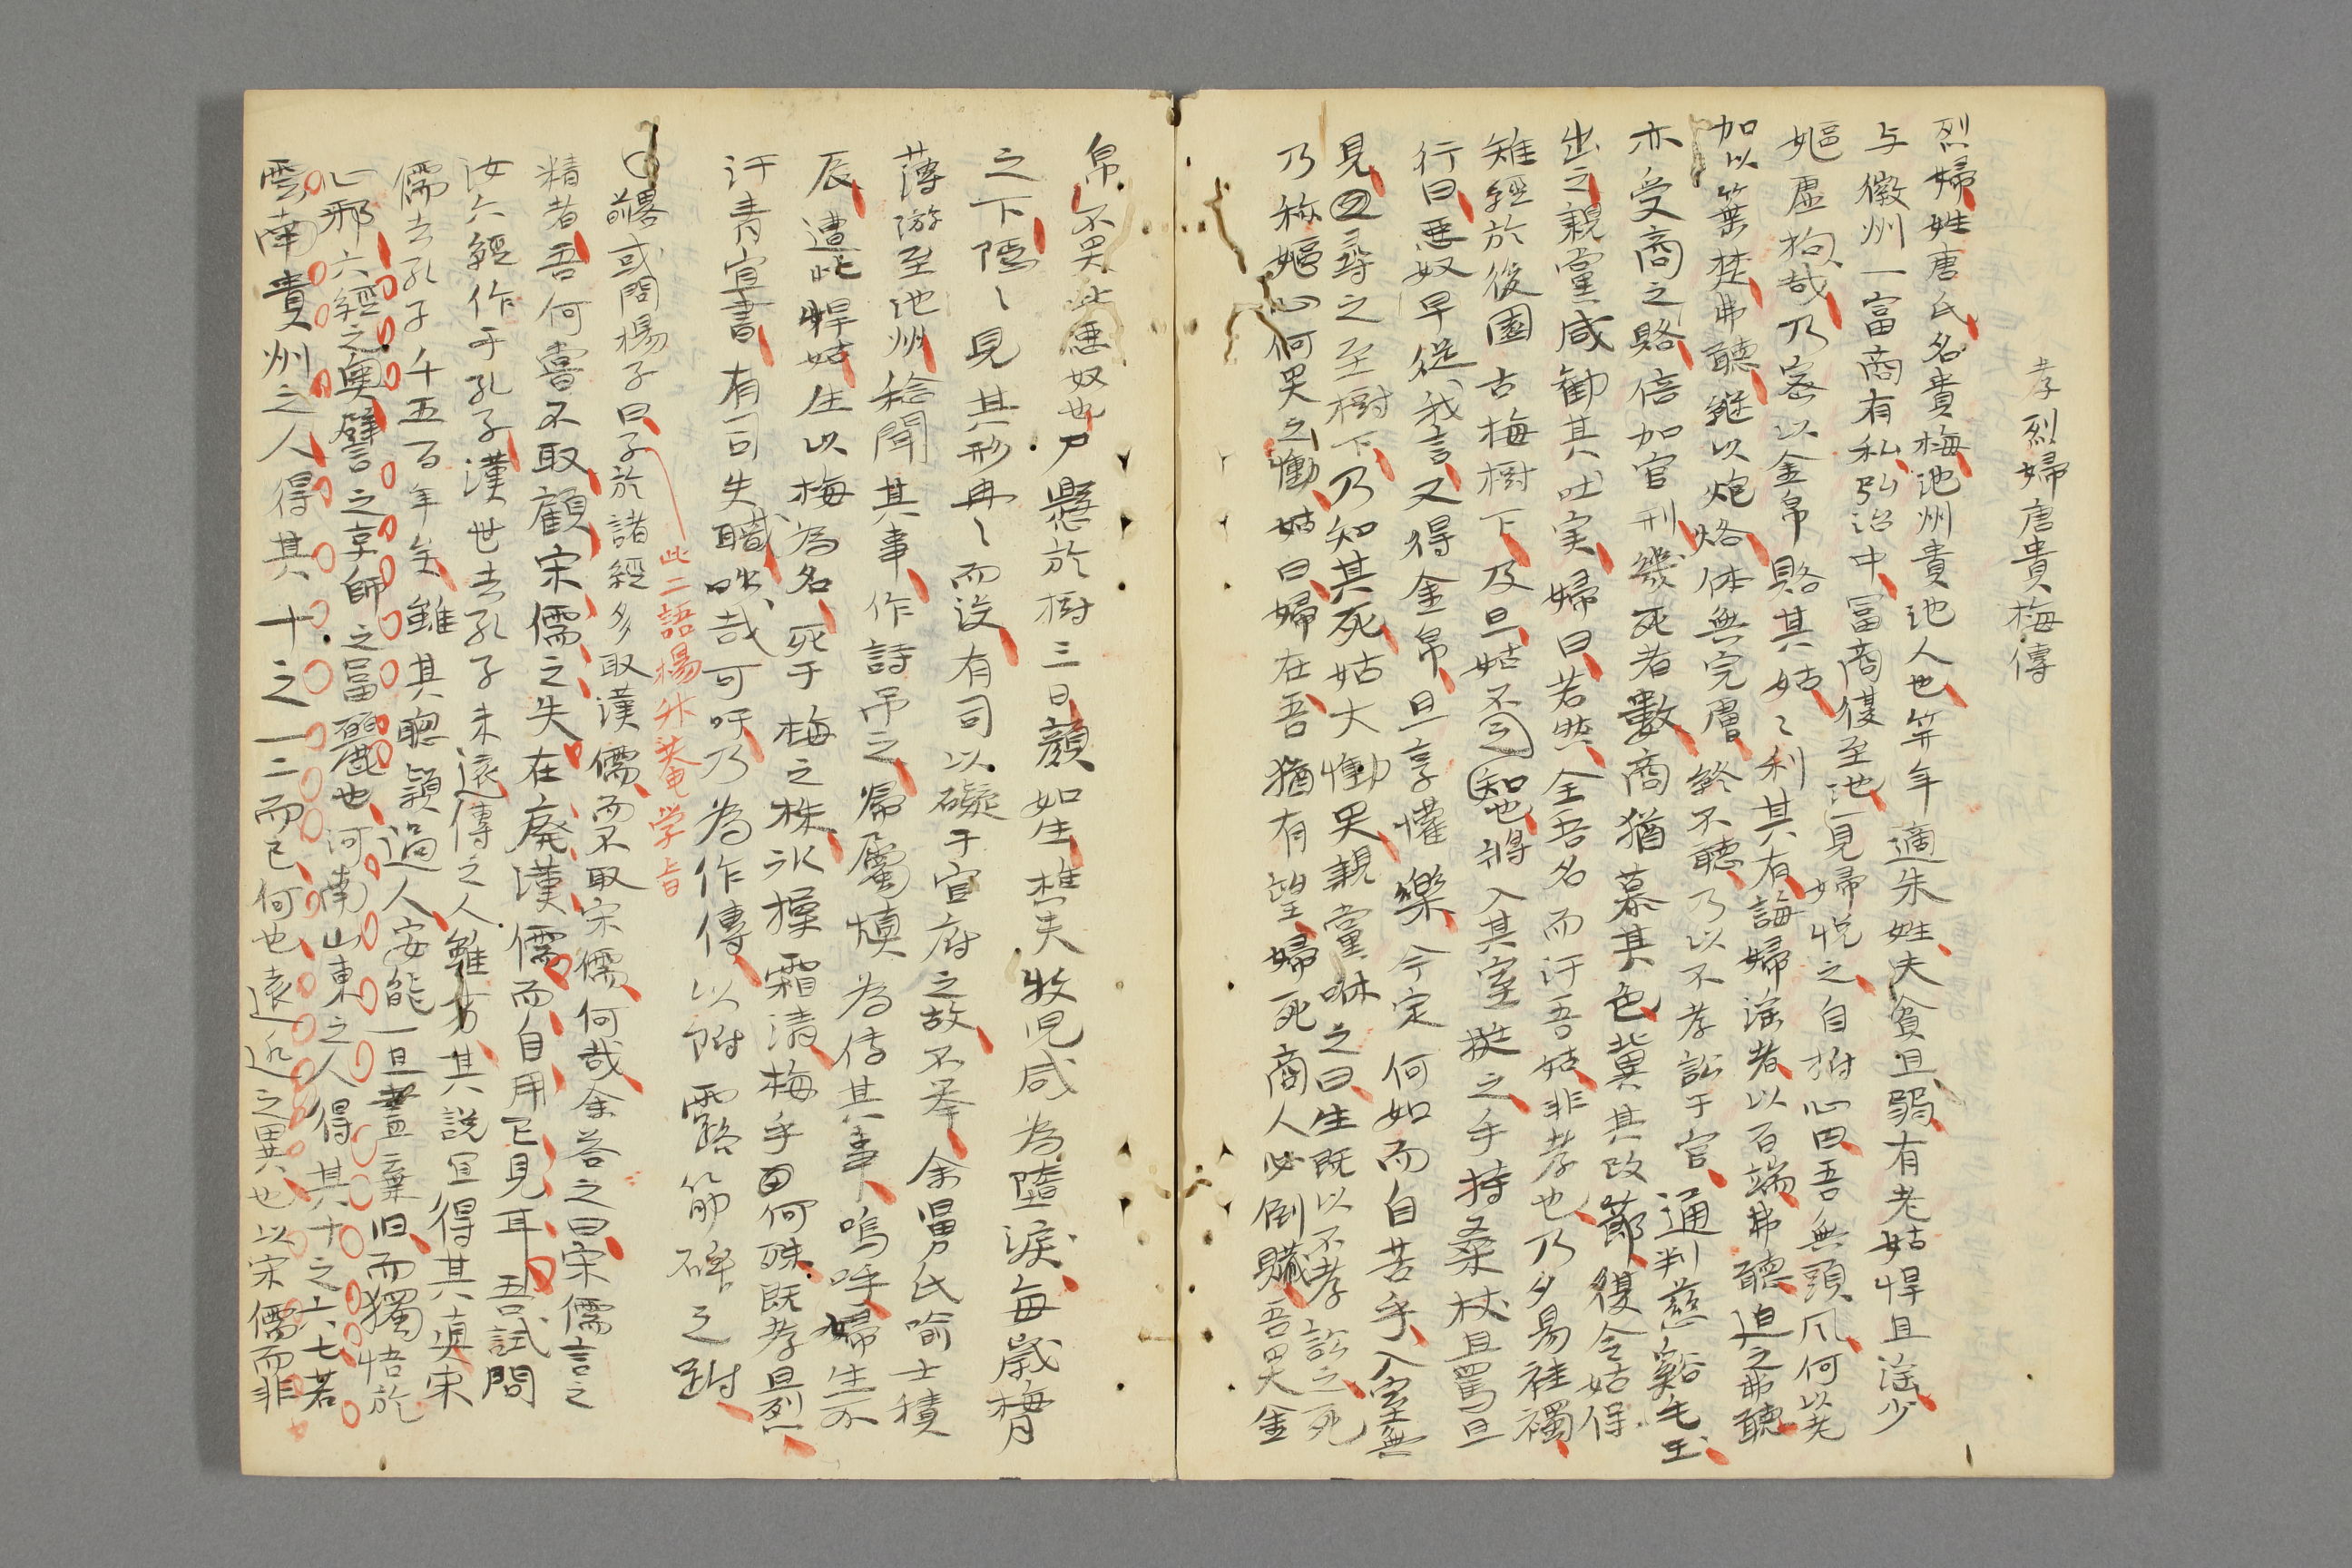 孝烈婦唐貴梅傳
烈婦姓唐氏名貴梅池州貴池人也笄年適朱姓夫貧且弱有老姑悍且淫少
与徽州一富商有私弘治中富商復至池見婦悅之自拊心曰吾無頭風何以老
嫗虛拘哉乃密以金帛賂其姑〻利其有誨婦淫者以百端弗聽迫之弗聽
加以箠楚弗聽繼以炮烙体無完膚終不聽乃以不孝訟于官通判慈谿毛玉
亦受商之賂倍加官刑幾死者數商猶慕其色冀其改節復令姑保
出之親黨咸勸其吐実婦曰若然全吾名而汙吾姑非孝也乃夕易袿襡
雉經於後園古梅樹下及旦姑不之知也將入其室挺之手持桑杖且罵且
行曰惡奴早從我言又得金帛且享懽樂今定何如而自苦乎入室無
見尋之至樹下乃知其死姑大慟哭親黨咻之曰生既以不孝訟之死
乃称嫗心何哭之慟姑曰婦在吾猶有望婦死商人必倒贓吾哭金
帛不哭此惡奴也尸懸於樹三日顏如生樵夫牧児咸為墮淚每歳梅月
之下隱〻見其形冉〻而没有司以礙于官府之故不举余舅氏喻士積
薄游至池州稔聞其事作詩弔之帰屬慎為傳其事嗚呼婦生不
辰遭此悍姑生以梅為名死于梅之株氷操霜清梅乎何殊既孝且烈
汗青宜書有司失職咄哉可吁乃為作傳以附露筋碑之跗
畧或問楊子曰子於諸經多取漢儒而不取宋儒何哉余荅之曰宋儒言之
此二語楊升菴学旨
精者吾何嘗不取顧宋儒之失在廃漢儒而自用己見耳吾試問
汝六經作于孔子漢世去孔子未遠傳之人雖劣其說宜得其真宋
儒去孔子千五百年矣雖其聰穎過人安能一旦盡棄旧而獨悟於
心邪六經之奧譬之享師之富麗也河南山東之人得其十之六七若
雲南貴州之人得其十之一二而已何也遠近之異也以宋儒而非